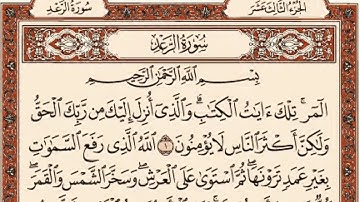 الجزء الثالث عشر
سورة الرعد
سورة الرعد
بسم الله الرحمن الرحيم
الٓمٓر ۚ تِلْكَ ءَايَٰتُ ٱلْكِتَٰبِ ۗ وَٱلَّذِىٓ أُنزِلَ إِلَيْكَ مِن رَّبِّكَ ٱلْحَقُّ
وَلَٰكِنَّ أَكْثَرَ ٱلنَّاسِ لَا يُؤْمِنُونَ ١ ٱللَّهُ ٱلَّذِى رَفَعَ ٱلسَّمَٰوَٰتِ
بِغَيْرِ عَمَدٍ تَرَوْنَهَا ۖ ثُمَّ ٱسْتَوَىٰ عَلَى ٱلْعَرْشِ ۖ وَسَخَّرَ ٱلشَّمْسَ وَٱلْقَمَرَ ۖ